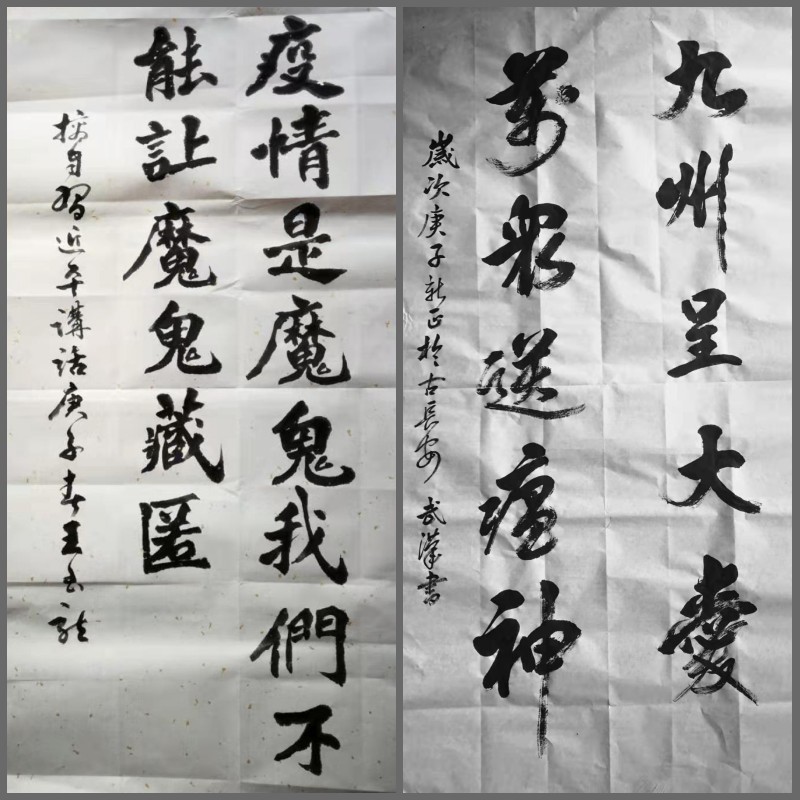 疫情是魔鬼我們不
能讓魔鬼藏匿
摘自習近平講話庚子春王玉龍
九州呈大愛
萬衆送瘟神
歲次庚子新正於古長安 武漢書